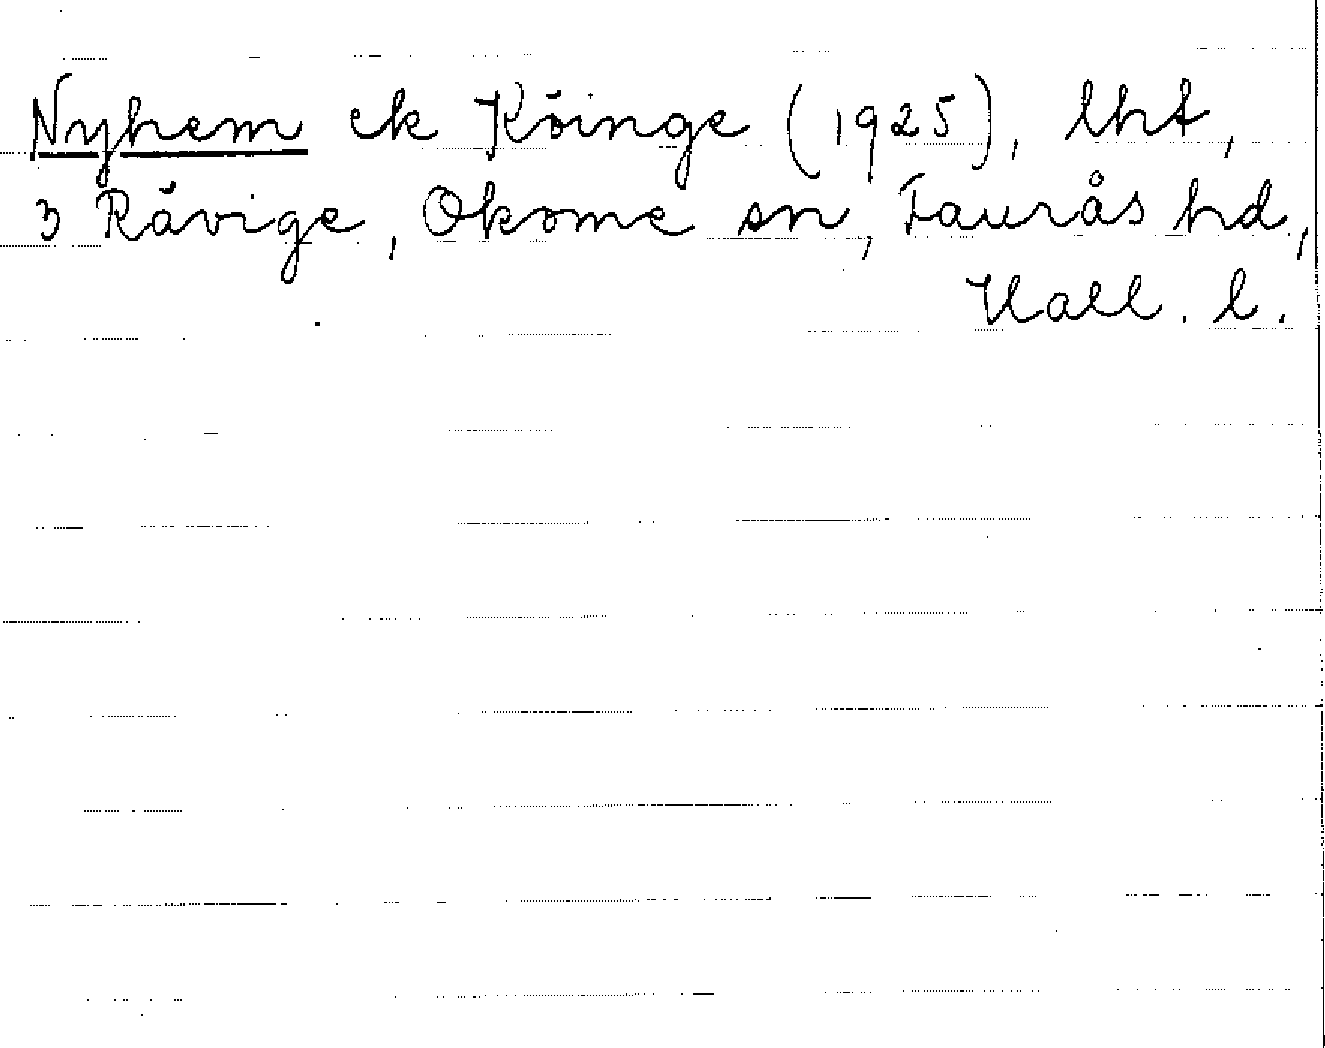 Nyhem ek Köinge (1925), lht,
3 Rävige, Okome sn, Faurås hd,
Hall. l.